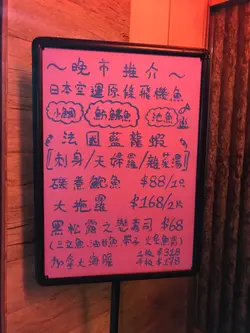 ～晚市推介～
日本空運原條飛機魚
小鯛 魴鱲魚 池魚
法國藍龍蝦
[刺身/天婦羅/雜菜湯]
磯煮鮑魚 $88/1只
大拖羅 $168/2片
黑松露之戀壽司 $68
(三文魚.油甘魚.帶子.火炙魚裙)
加拿大海膽 1板 $318
半板 $178